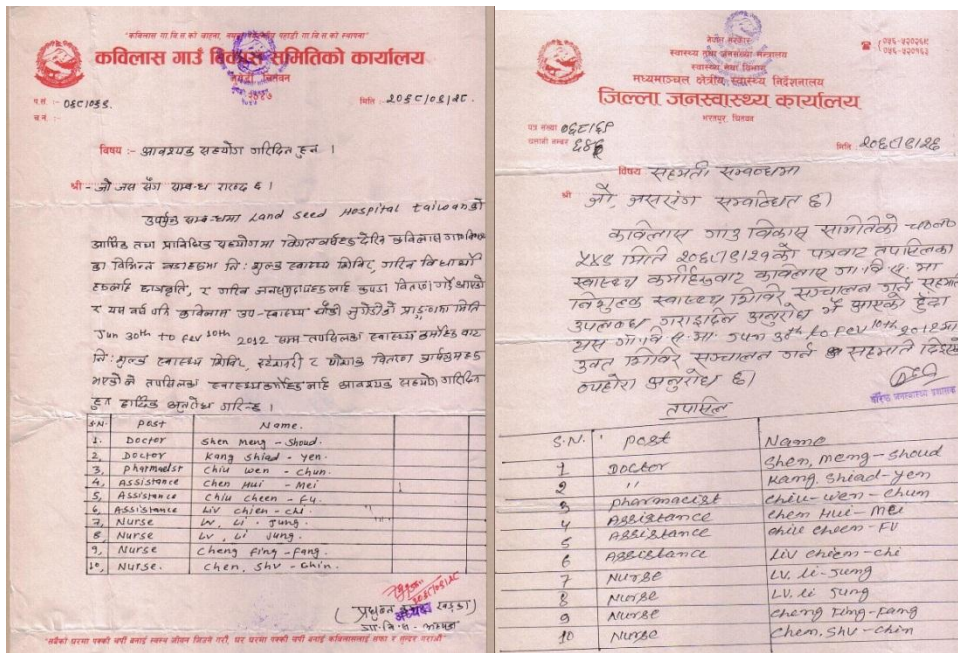 "कविलास गा.वि.स.को चाहना, नमूना पहाडी गा.वि.स.को स्थापना"
कविलास गाउँ विकास समितिको कार्यालय
चितवन
प.स. :- ०६८।०६९
च.न. :-
मिति :- २०६८/०९/२८
विषय :- आवश्यक सहयोग गरिदिन हुन ।
श्री - जो जस सँग सम्बन्ध राख्दछ ।
उपर्युक्त सम्बन्धमा Land Seed Hospital taiwanको
आर्थिक तथा प्राविधिक सहयोगमा विगत वर्षहरु देखि कविलास गा.वि.स.
का विभिन्न वडाहरुमा नि: शुल्क स्वास्थ्य शिविर, गरिब विद्यार्थी
हरुलाई छात्रवृत्ति, र गरिब जनसमुदायहरुलाई कपडा वितरण गर्दै आएको
र यस वर्ष पनि कविलास उप-स्वास्थ्य चौकी प्राङ्गणमा मिति
Jun 30th to Fev 10th 2012 सम्म तपसिलका स्वास्थ्यकर्मीहरु बाट
नि: शुल्क स्वास्थ्य शिविर, स्टेशनरी र पोशाक वितरण कार्यक्रमहरु
भएकोले तपसिलका स्वास्थ्यकर्मीहरुलाई आवश्यक सहयोग गरिदिन
हुन हार्दिक अनुरोध गरिन्छ ।
S.N. Post Name.
1. Doctor Shen Meng - Shoud.
2. Doctor Kang Shiad - Yen.
3, Pharmacist Chiu Wen - Chun.
4. Assistance Chen Hui - Mei
5. Assistance Chiu Cheen - Fu.
6, Assistance Liv Chien - Chi.
7, Nurse Lv, Li - Jung.
8. Nurse Lv, Li Jung.
9, Nurse Cheng Fing - Fang.
10, Nurse. Chen, Shv - Chin.
२०६८/०९/२८
अध्यक्ष
गा.वि.स. - अध्यक्ष
नेपाल सरकार
स्वास्थ्य तथा जनसंख्या मन्त्रालय
स्वास्थ्य सेवा विभाग
मध्यमाञ्चल क्षेत्रीय स्वास्थ्य निर्देशनालय
जिल्ला जनस्वास्थ्य कार्यालय
भरतपुर, चितवन
पत्र संख्या ०६८/६९
चलानी नम्बर
मिति: २०६८/९/२६
विषय सहमती सम्बन्धमा
श्री जो, जससंग सम्बन्धित छ ।
कविलास गाउ विकास समितिको च०न०
५४९ मिति २०६८/९/२१को पत्रबाट तपसिलका
स्वास्थ्य कर्मीहरुबाट कविलास गा.वि.स. मा
निशुल्क स्वास्थ्य शिविर सञ्चालन गर्न सहमति
उपलब्ध गराइदिन अनुरोध भै आएको हुँदा
यस गा.वि.स.मा Jun 30th to Fev 10th 2012मा
उक्त शिविर सञ्चालन गर्न सहमति दिइएको
व्यहोरा अनुरोध छ ।
तपसिल
S.N. Post Name
1 Doctor Shen, Meng-Shoud
2 " Kang. Shiad-Yen
3 Pharmacist Chiu-Wen-Chun
4 Assistance Chen Hui-Mei
5 Assistance Chiu Cheen-Fu
6 Assistance Liv Chien-Chi
7 Nurse Lv. Li-Jung
8 Nurse Lv. Li Jung
9 Nurse Cheng Fing-Fang
10 Nurse Chen. Shv-Chin